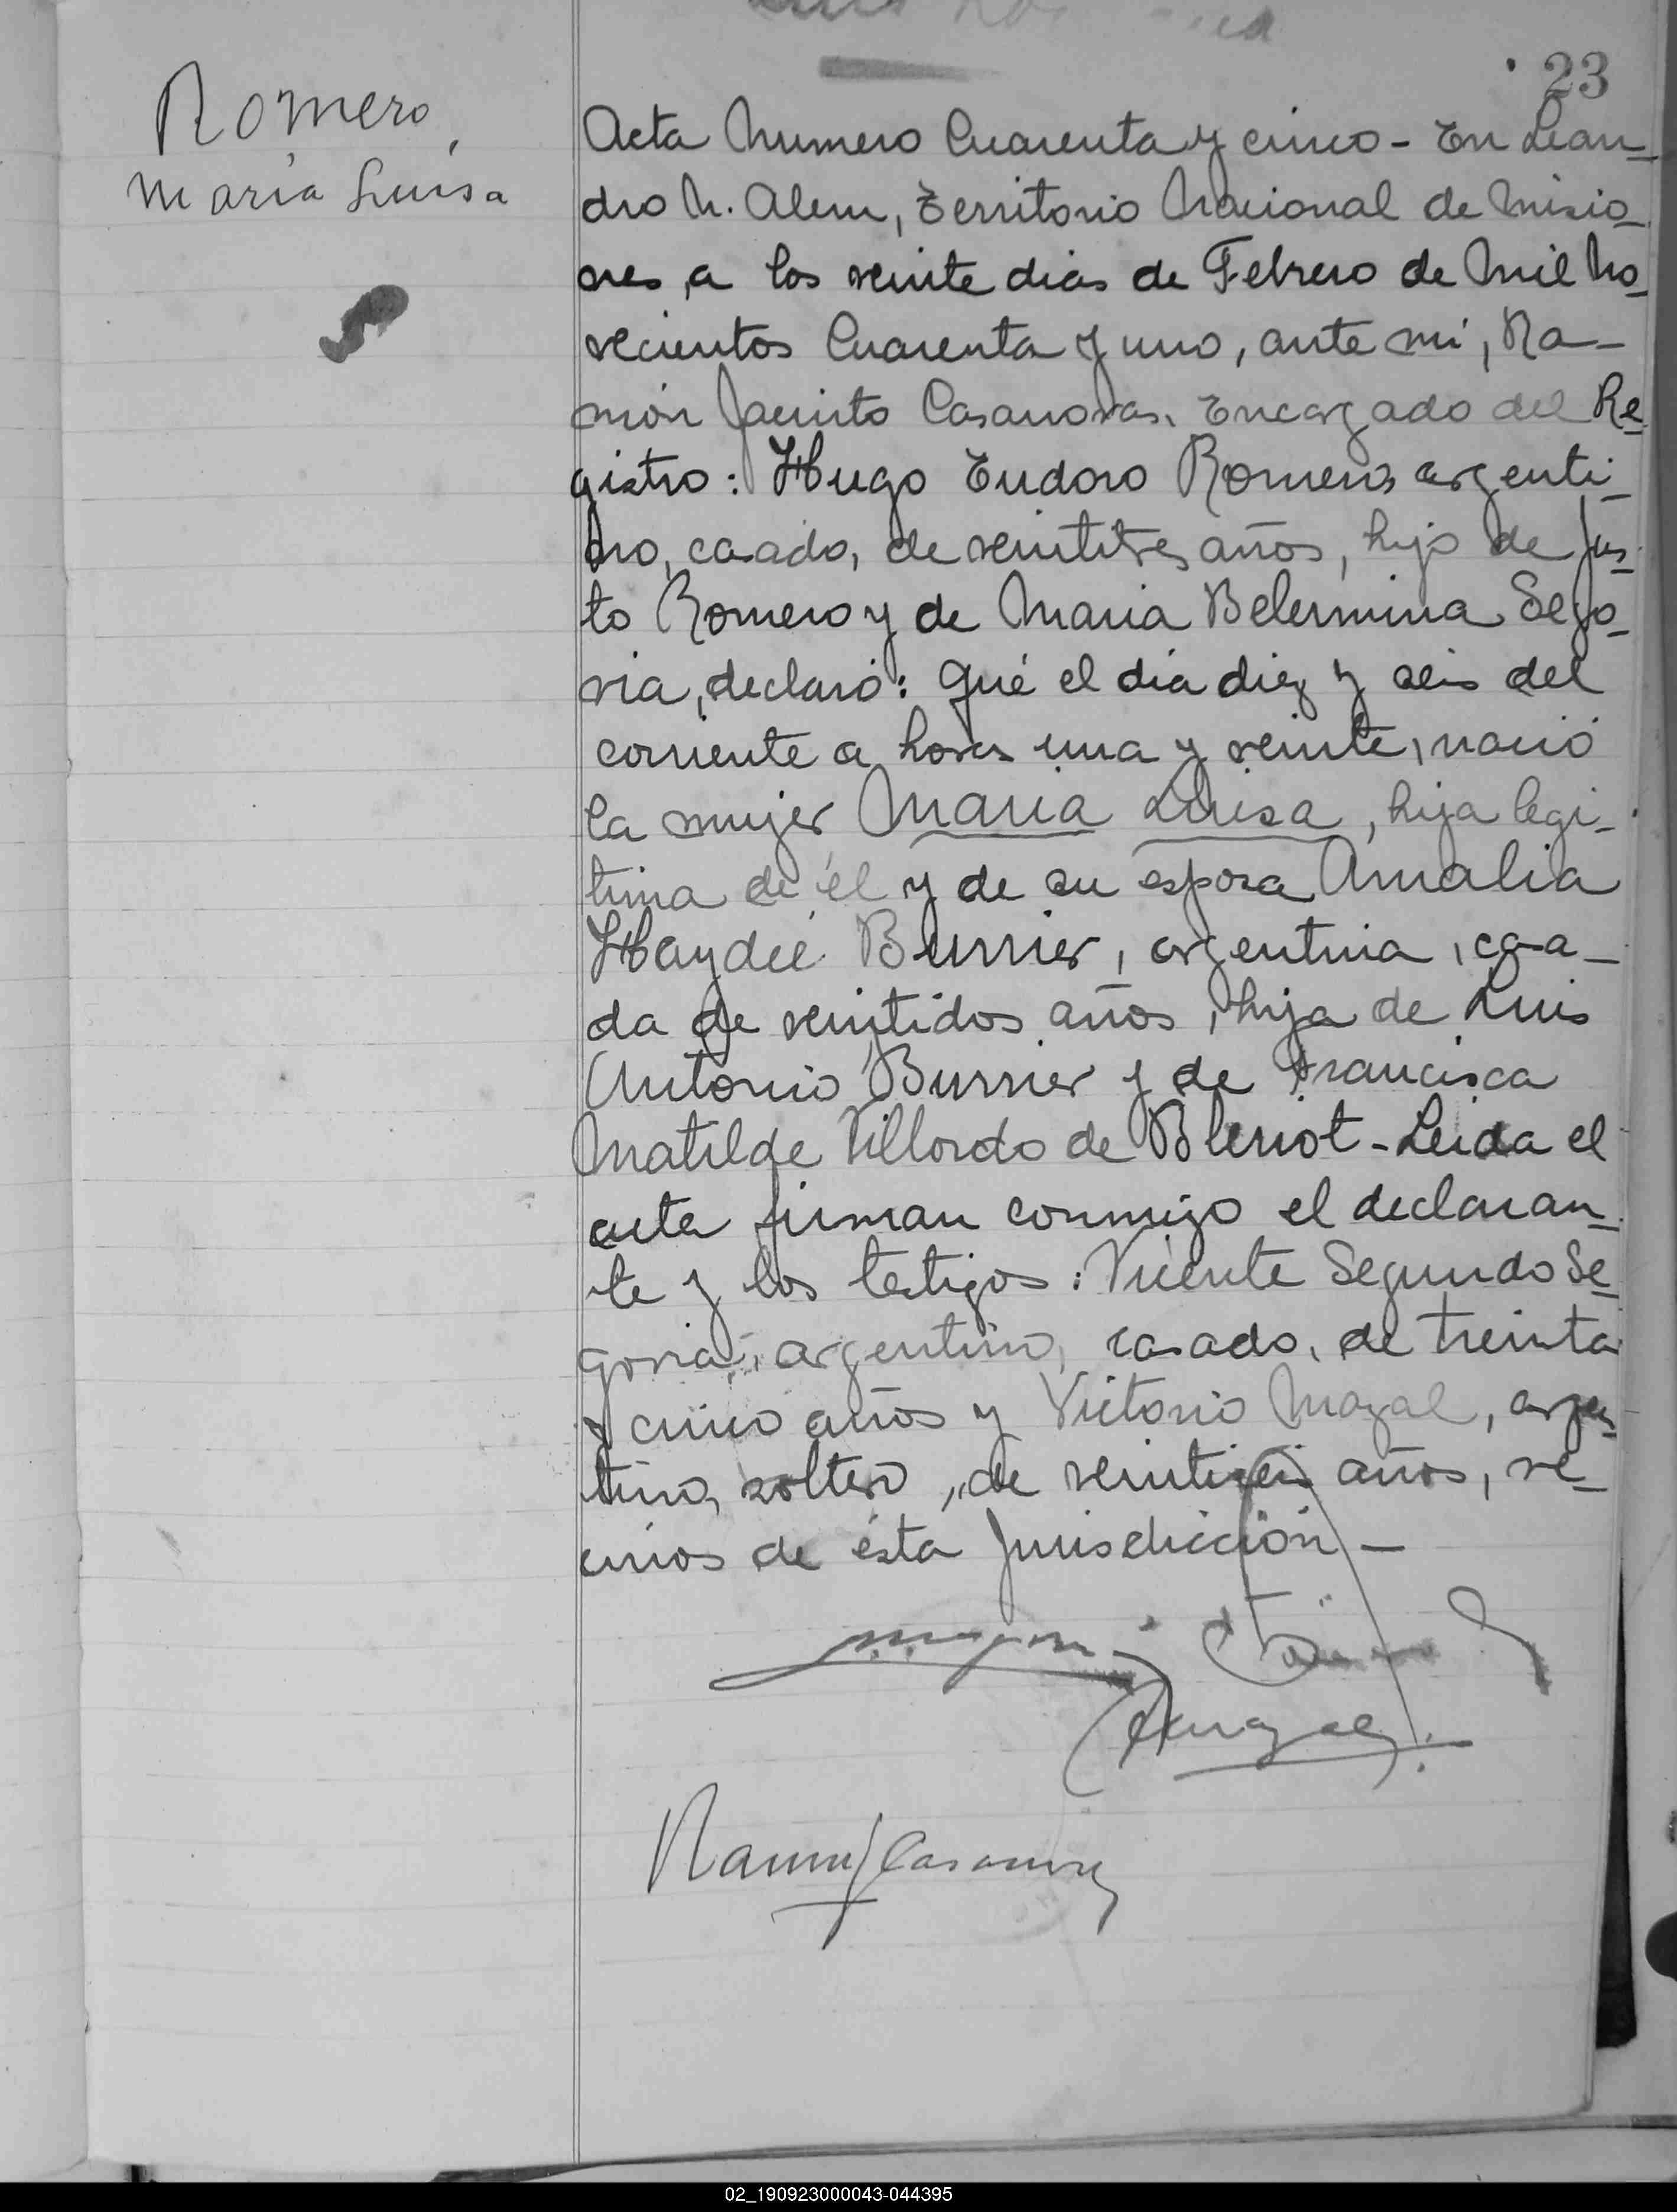 23
Romero,
Maria Luisa
Acta Numero Cuarenta y cinco - En Lean-
dro N. Alem, Territorio Nacional de Misio-
nes, a los veinte dias de Febrero de Mil No-
vecientos Cuarenta y uno, ante mi, Ra-
món Jacinto Casanovas, Encargado del Re-
gistro: Hugo Eudoro Romero, argenti-
no, casado, de veintitres años, hijo de Jus-
to Romero y de Maria Belermina Sego-
via, declaró: Qué el día diez y seis del
corriente a horas una y veinte, nació
la mujer Maria Luisa, hija legi-
tima de él y de su esposa Amalia
Haydeé Burrier, argentina, casa-
da de veintidos años, hija de Luis
Antonio Burrier y de Francisca
Matilde Villordo de Bleriot - Leida el
acta firman conmigo el declaran-
te y los testigos: Vicente Segundo Se-
govia, argentino, casado, de treinta
y cinco años y Victorio Mazal, argen-
tino, soltero, de veintiseis años, ve-
cinos de ésta Jurisdicción -
Ramon J Casanovas
02_190923000043-044395